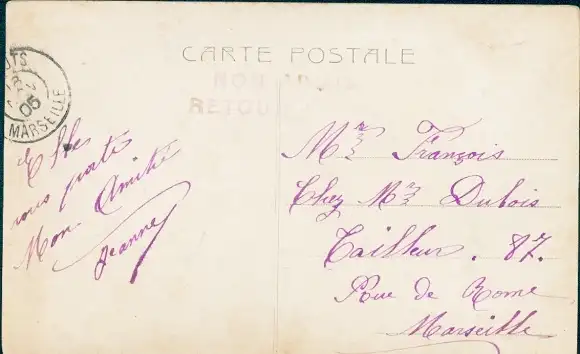 CARTE POSTALE
NON
RETOU
MARSEILLE
05
Elle
vous porte
Mon Amitié
Jeanne
Mr François
Chez Mr Dubois
Tailleur. 87.
Rue de Rome
Marseille